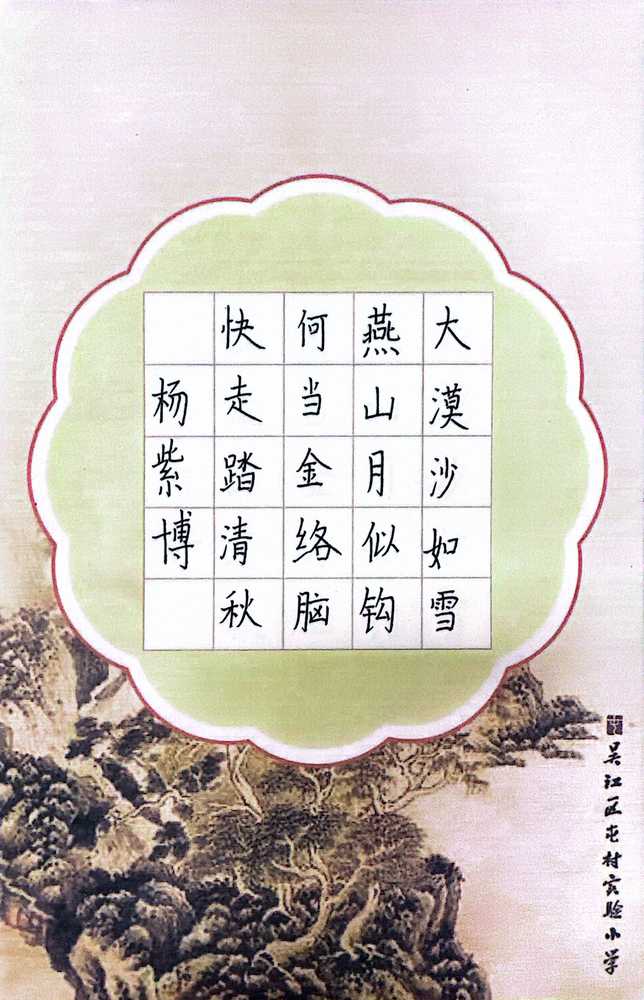 大漠沙如雪
燕山月似钩
何当金络脑
快走踏清秋
杨紫博
吴江区屯村实验小学